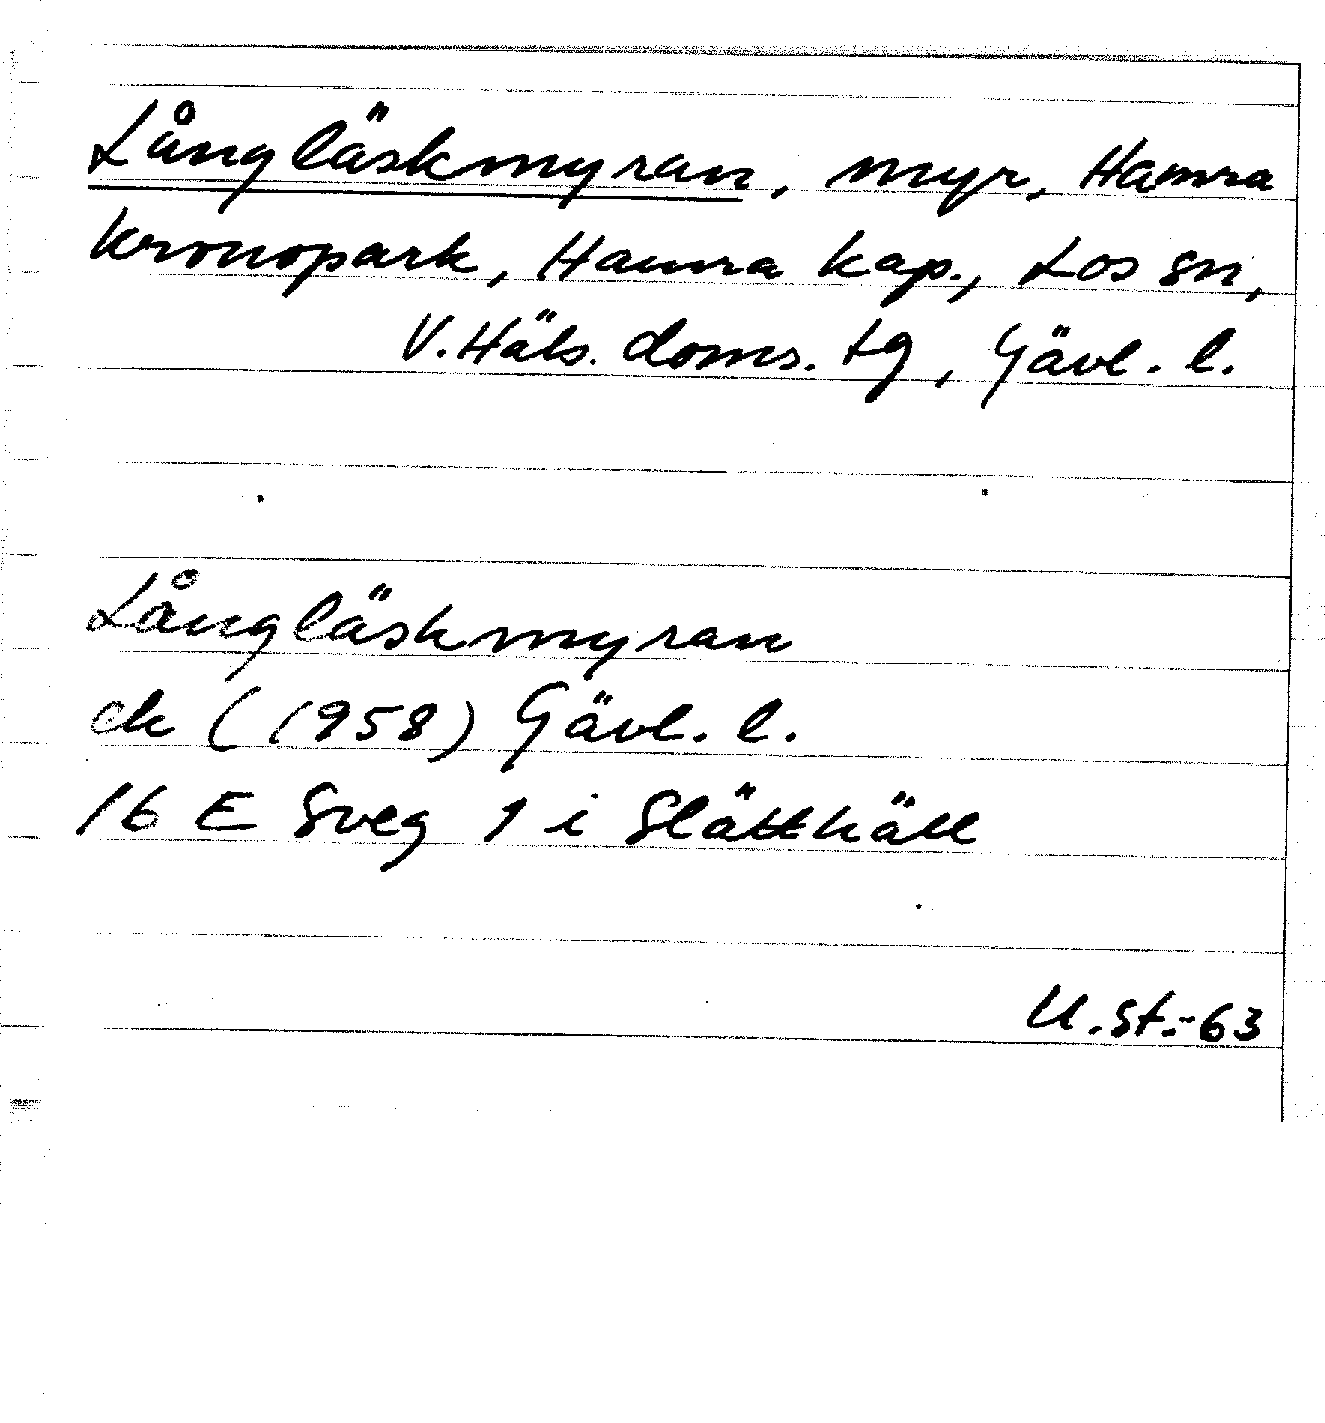 Långläskmyran, myr, Hamra
kronopark, Hamra kap., Los sn,
V. Häls. doms. tg, Gävl. l.
Långläskmyran
ek (1958) Gävl. l.
16 E Sveg 1 i Slätthäll
U. St.-63